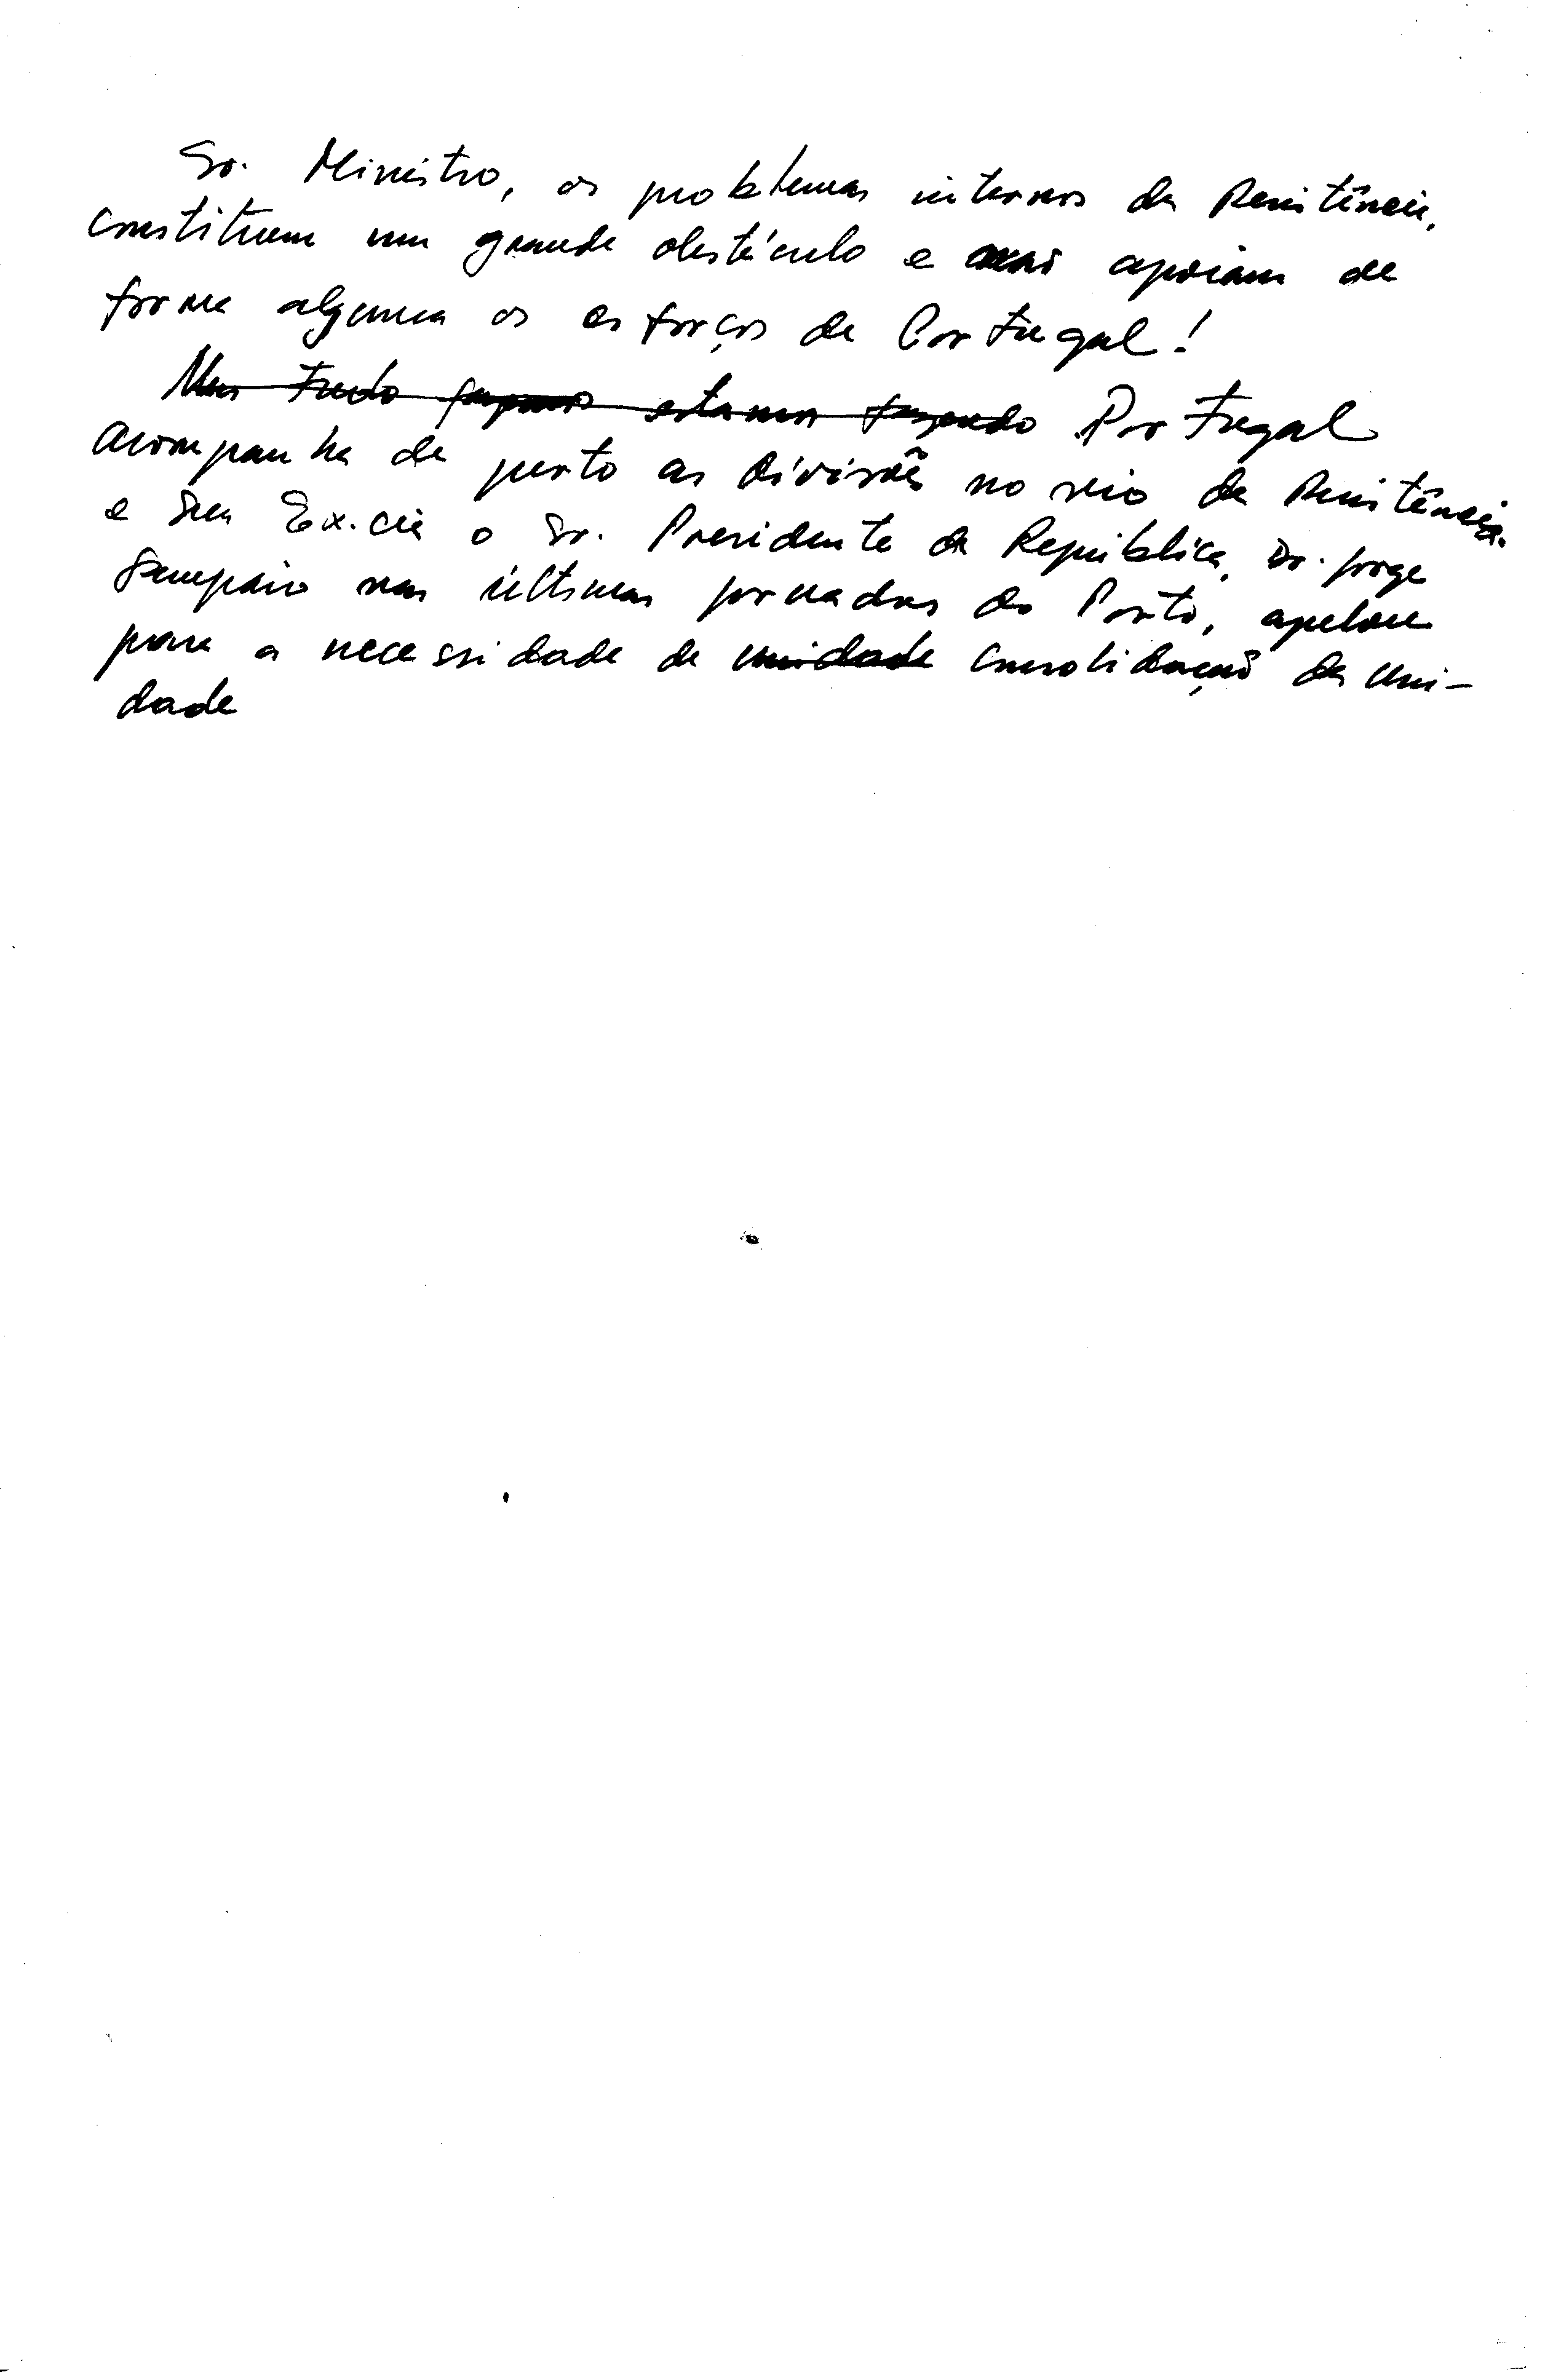 Sr. Ministro, os problemas internos da Resistência,
constituem um grande obstáculo e não apoiam de
forma alguma os esforços de Portugal!
Mas tudo estamos fazendo Portugal
acompanha de perto as divisões no seio da Resistência.
e Sua Ex.cia o Sr. Presidente da República, Dr. Jorge
Sampaio nas últimas jornadas do Porto, apelou
para a necessidade de unidade consolidação da uni-
dade